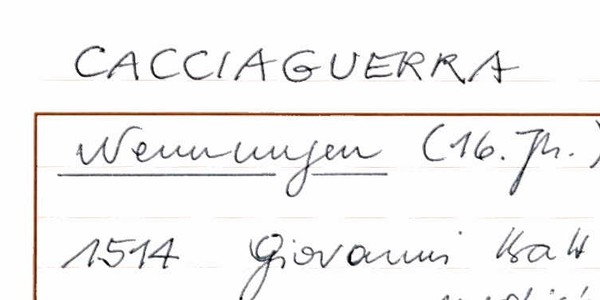 CACCIAGUERRA
Nennungen (16. Jh.)
1514 Giovanni Batt